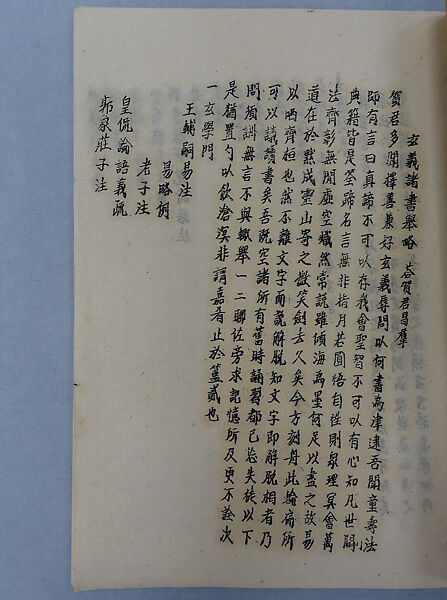 玄義諸書舉略 答賀君昌羣
賀君多聞擇善兼好玄義辱問以何書為津逮吾聞童壽法
師有言曰真諦不可以存我會聖智不可以有心知凡世間
典籍皆是筌蹄名言無非指月若圓悟自性則衆理冥會萬
法齊彰無閒虛空熾然常説雖傾海為墨何足以盡之故易
道在於默成靈山寄之微笑劍去久矣今方刻舟此輪扁所
以哂齊桓也然不離文字而說解脫知文字即解脫相者乃
可以議讀書矣吾既空諸所有舊時誦習都已忘失徒以下
問須訓無言不與輙舉一二聊佐旁求記憶所及更不詮次
是猶置勺以飲滄溟非謂嘉肴止於簋貳也
一玄學門
王輔嗣易注
易略例
老子注
皇侃論語義疏
郭象莊子注